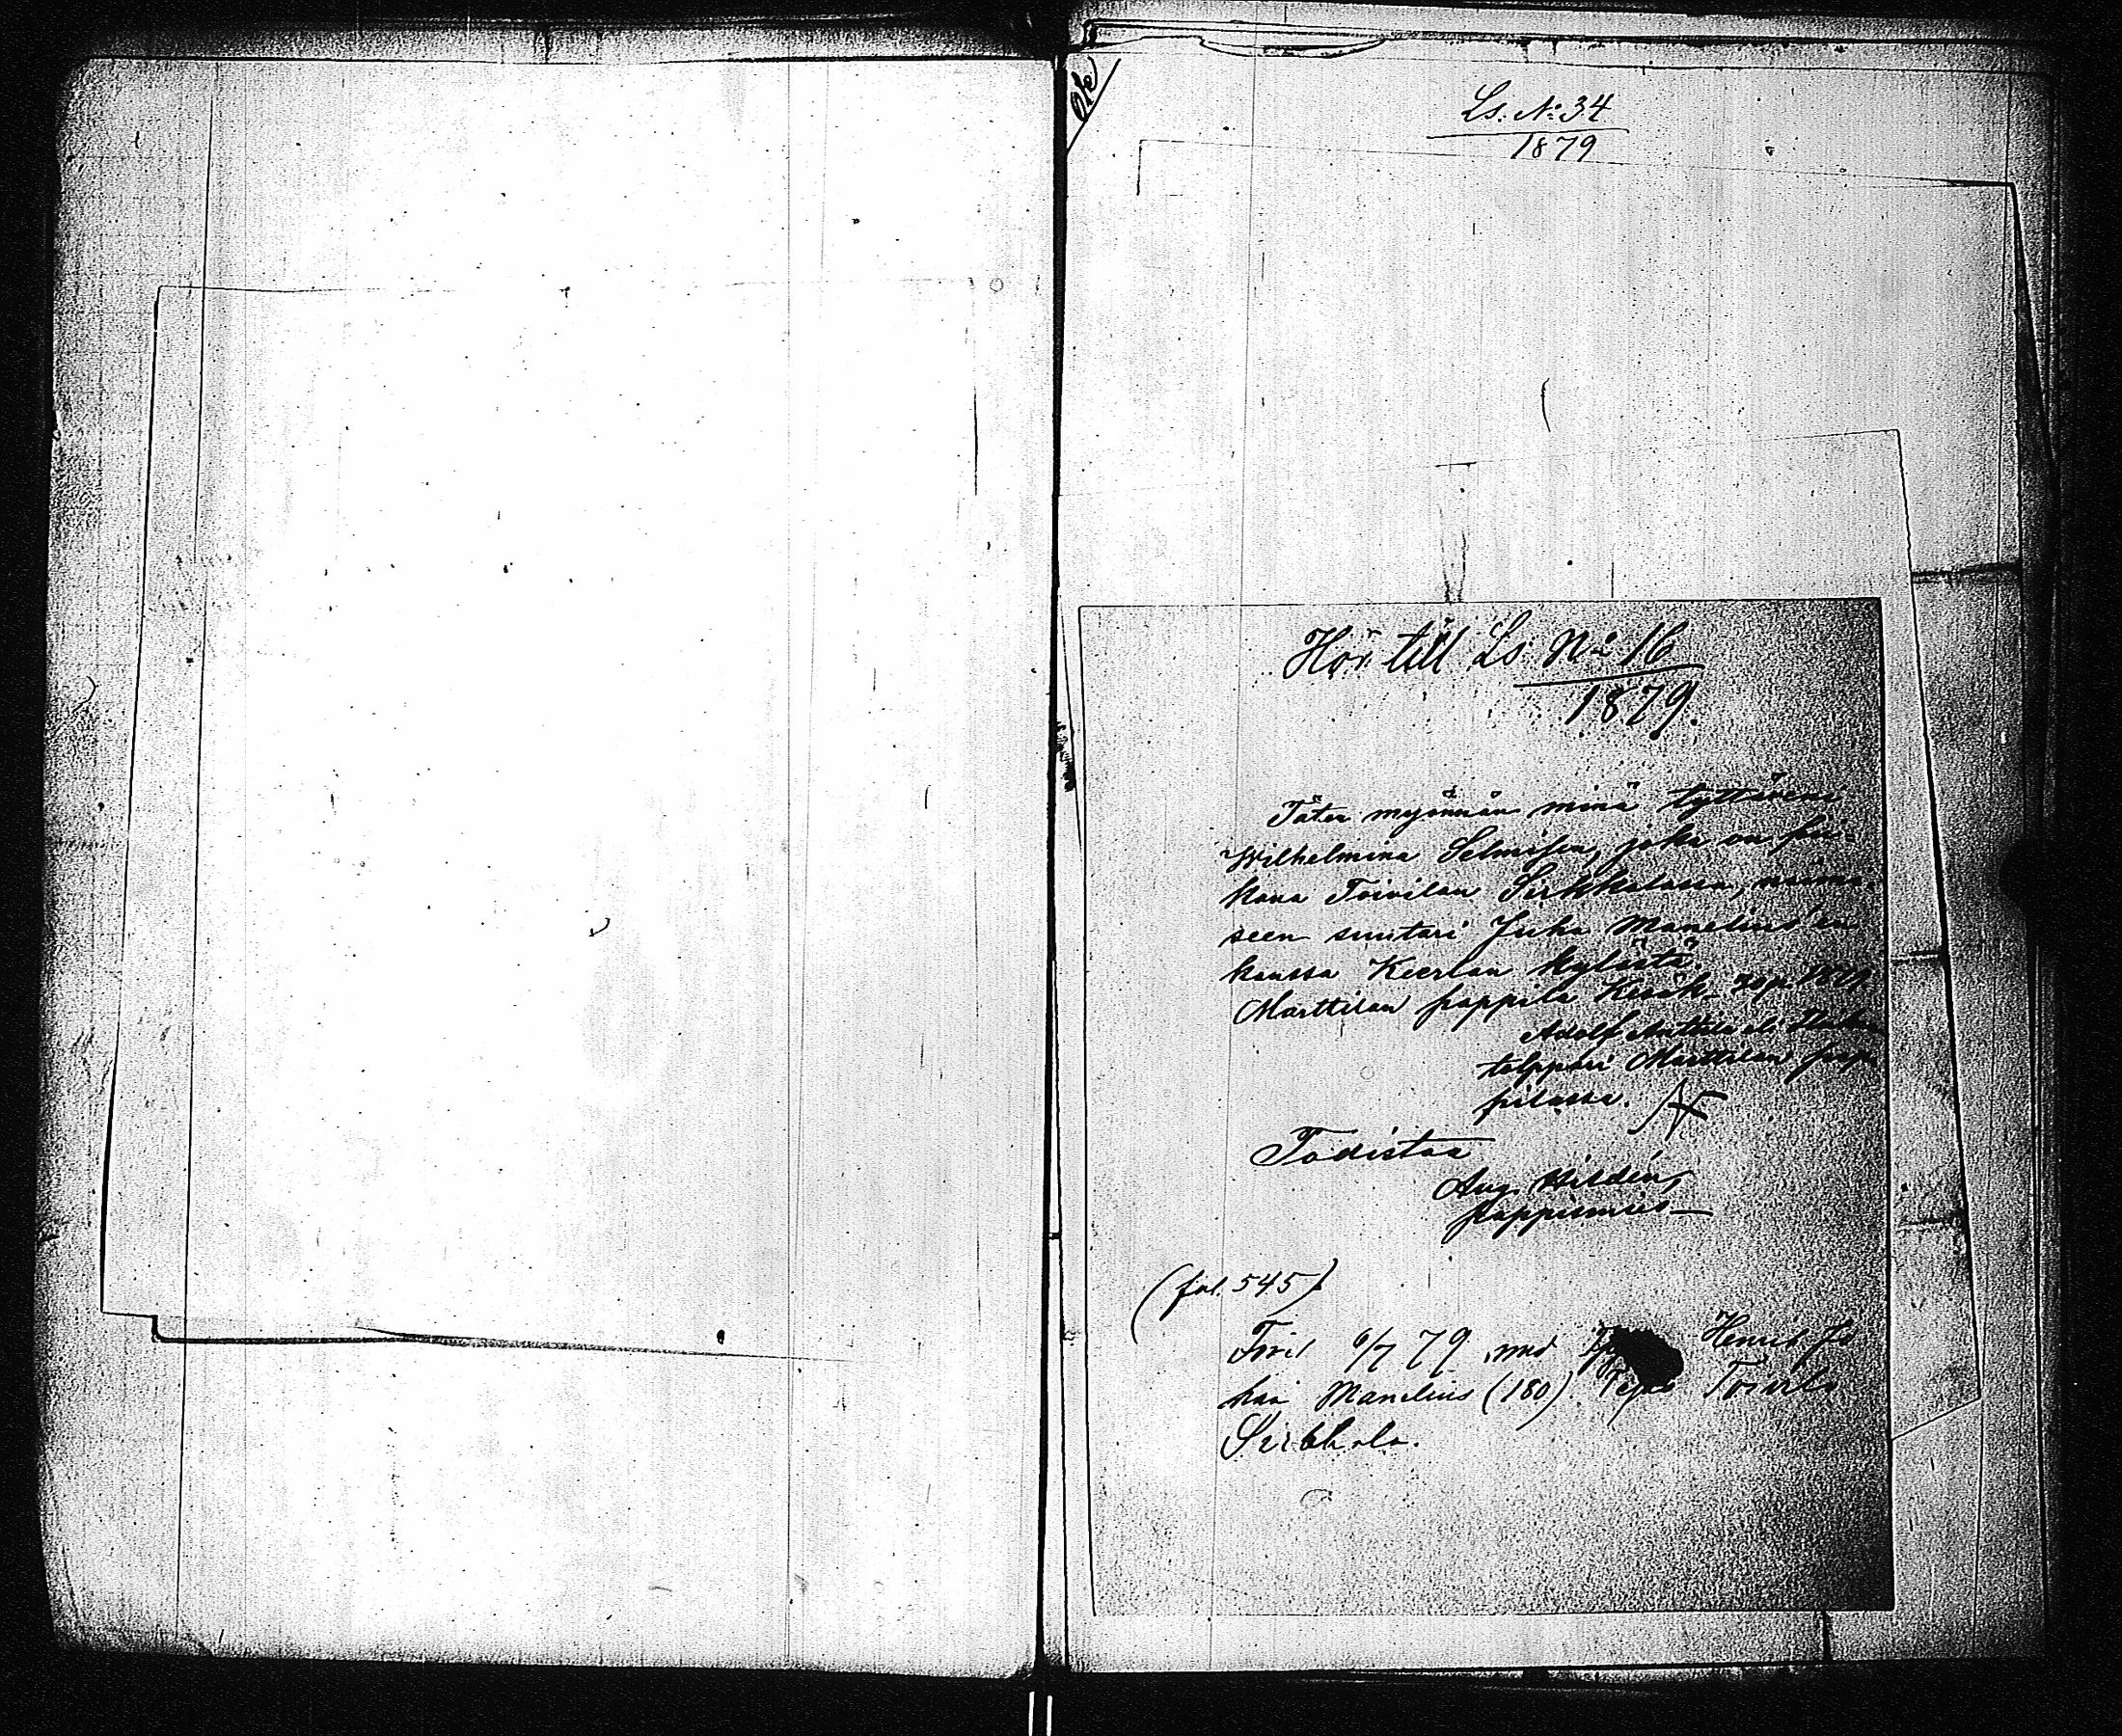 Ls. No 34
1879
Hör till Ls. No 16
1879.
Täten myönnän minä tyttäreni
Wilhelmina Selmisen, joka on pii-
kana Toivilan Sirkkalassa, naimi-
seen suutari Juha Manelius'en
kanssa Kierlan kylästä
Marttilan pappila Kesäk. 1879
Adolf
tolppari Marttilan pap-
pilassa.
Todistaa
Aug. Hildén,
pappismies
(fol. 545)
6/7 79 med Henrik Jo
han Manelius (180). Toivila
Sirkkala.